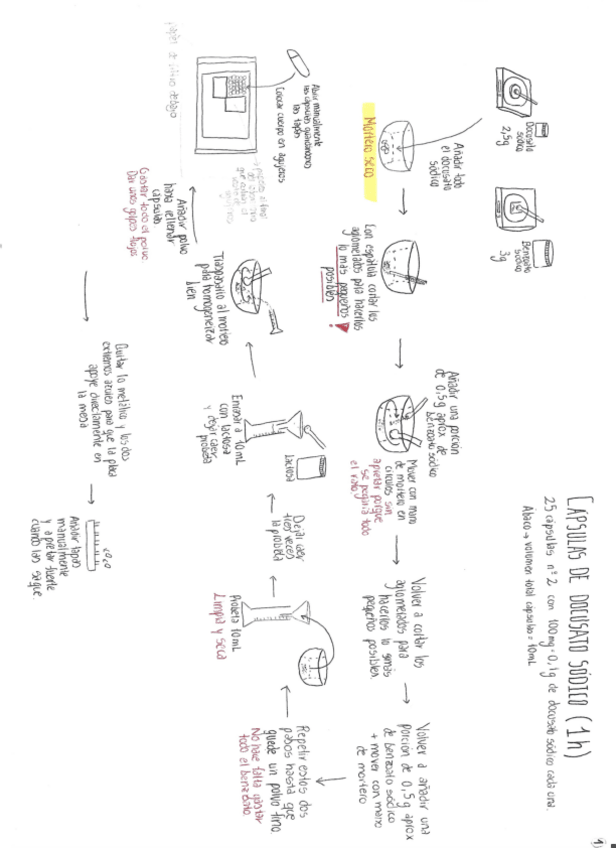 1
CÁPSULAS DE DOCUSATO SÓDICO (1h)
25 cápsulas nº 2 con 100mg = 0,1g de docusato sódico cada una.
Ábaco → volumen total cápsulas = 10mL
Docusato
sódico
2,5g
Benzoato
sódico
3g
Añadir todo
el docusato
sódico
Mortero seco
Con espátula cortar los
aglometados para hacerlos
lo más pequeños
posibles
Añadir una porción
de 0,5g aprox de
benzoato sódico
Mover con mano
de mortero en
círculos sin
apretar porque
se pegaría todo
el rato.
Volver a cortar los
aglometados para
hacerlos lo más
pequeños posibles.
Volver a añadir una
porción de 0,5g aprox
de benzoato sódico
+ mover con mano
de mortero
Repetir estos dos
pasos hasta que
quede un polvo fino.
No hace falta gastar
todo el benzoato.
Probeta 10mL
Limpia y seca
Dejar caer
tres veces
la probeta
Lactosa
Enrasar a 10mL
con lactosa
y dejar caer
probeta
Traspasarlo al mortero
para homogeneizar
bien
Añadir polvo
hasta rellenar
cápsulas
Gastar todo el polvo.
Dar unos golpes flojos
Abrir manualmente
las cápsulas quitándonos
las tapas
Colocar cuerpo en agujeros
Papel de filtro debajo
Quitar lo metálico y los dos
extremos azules para que la placa
apoye directamente en
la mesa
Añadir tapas
manualmente
y apretar fuerte
cuando las saque.